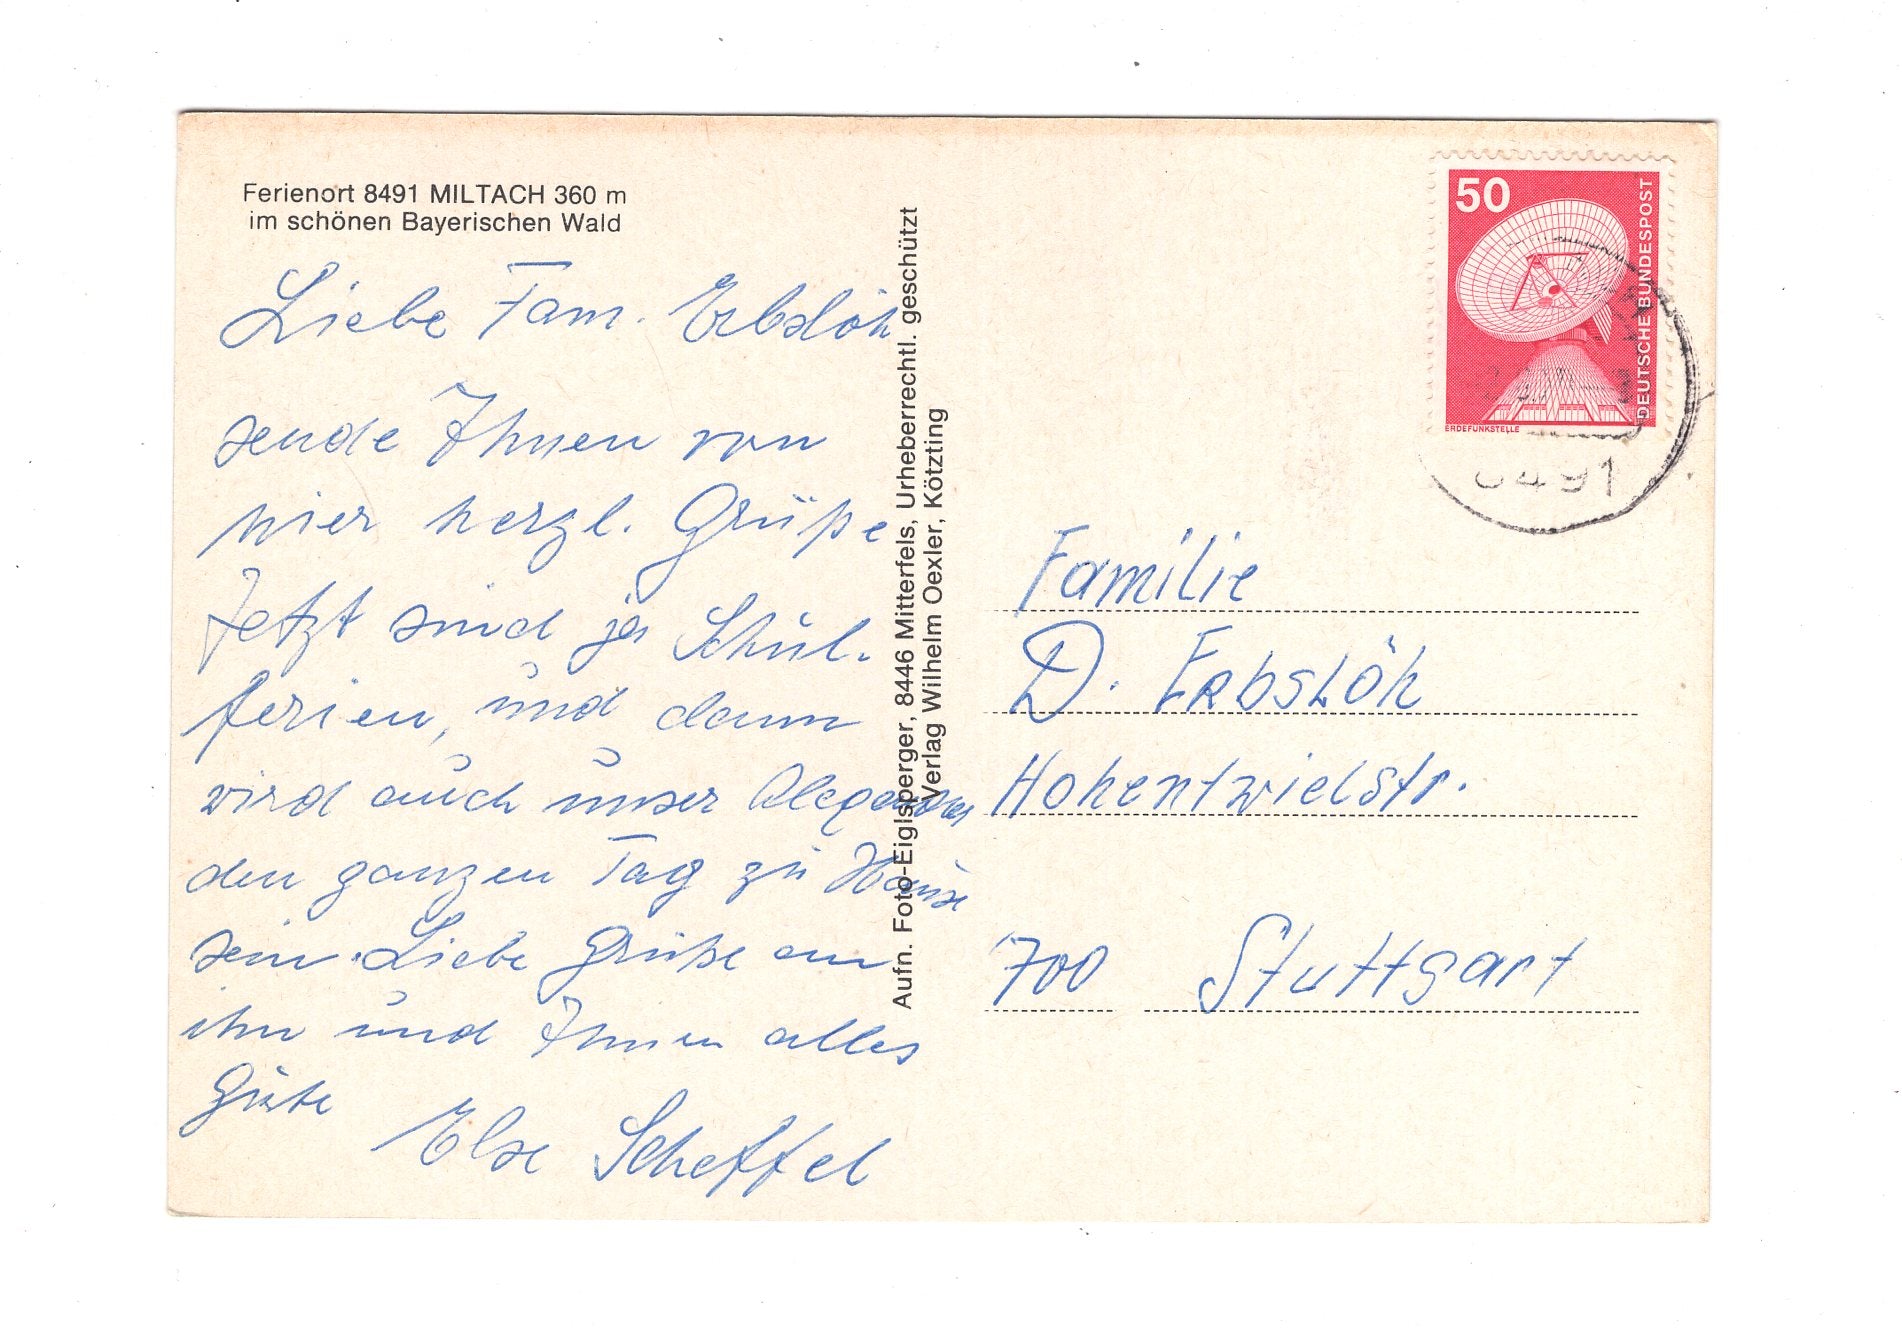 Ferienort 8491 MILTACH 360 m
im schönen Bayerischen Wald
Liebe Fam. Erbslöh
sende Ihnen von
hier herzl. Grüße
Jetzt sind ja Schul-
ferien, und dann
wird auch unser Alexander
den ganzen Tag zu Hause
sein. Liebe Grüße an
ihn und Ihnen alles
Gute
Else Scheffel
Aufn. Foto-Eiglsperger, 8446 Mitterfels, Urheberrechtl. geschützt
Verlag Wilhelm Oexler, Kötzting
50
DEUTSCHE BUNDESPOST
ERDEFUNKSTELLE
8491
Familie
D. Erbslöh
Hohentwielstr.
700 Stuttgart